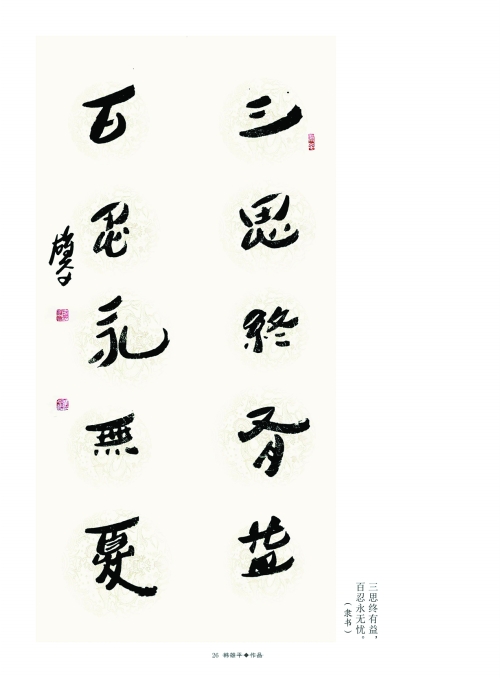 三思終有益
百忍永無憂
雄平
三思终有益,
百忍永无忧。
(隶书)
26 韩雄平◆作品